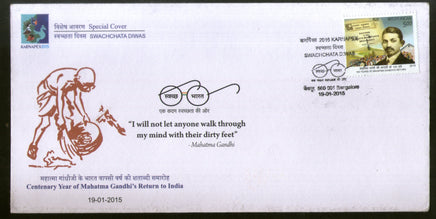 विशेष आवरण Special Cover
स्वच्छता दिवस SWACHCHATA DIWAS
KARNAPEX2015
कार्नापेक्स 2015 KARNAPEX
स्वच्छता दिवस
SWACHCHATA DIWAS
बेंगलूर 560 001 Bangalore
19-01-2015
स्वच्छ भारत
एक कदम स्वच्छता की ओर
"I will not let anyone walk through
my mind with their dirty feet"
- Mahatma Gandhi
महात्मा गांधीजी के भारत वापसी वर्ष की शताब्दी समारोह
Centenary Year of Mahatma Gandhi's Return to India
19-01-2015